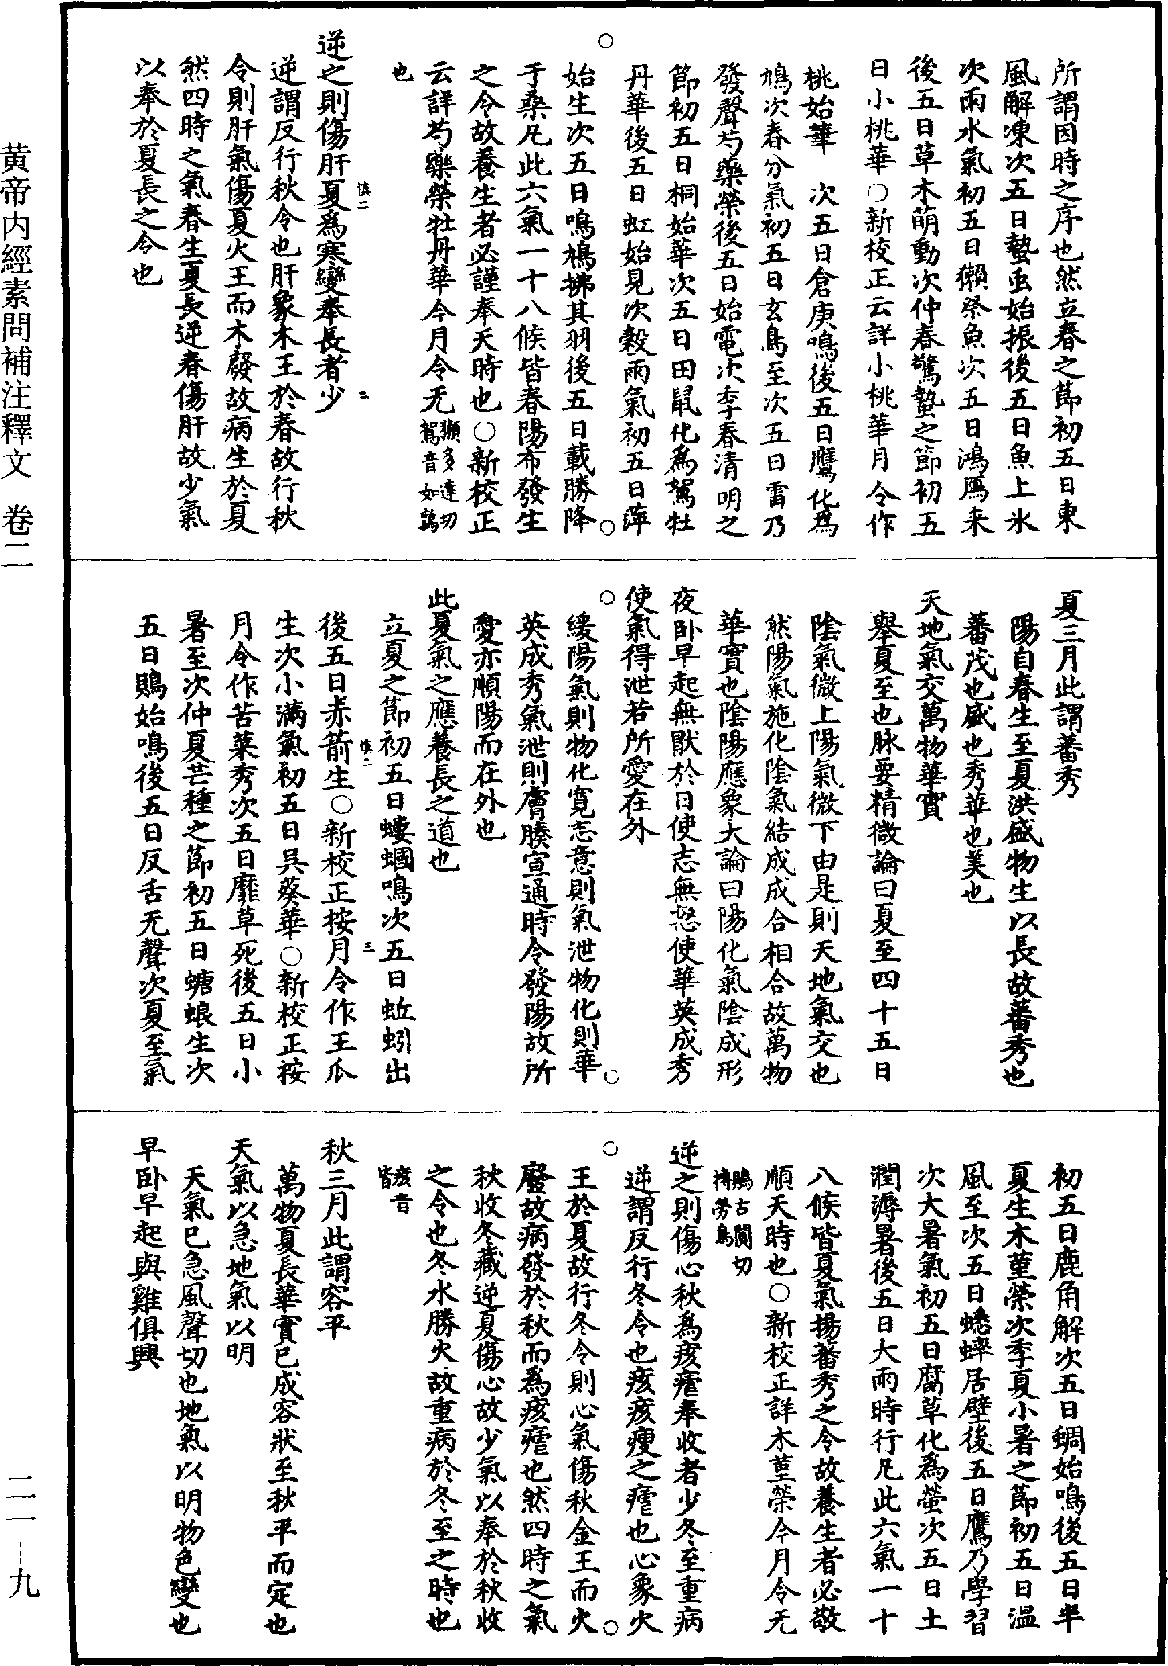 黃帝內經素問補注釋文 卷二
二一—九
所謂因時之序也然立春之節初五日東
風解凍次五日蟄虫始振後五日魚上氷
次雨水氣初五日獺祭魚次五日鴻鴈来
後五日草木萌動次仲春驚蟄之節初五
日小桃華○新校正云詳小桃華月令作
桃始華 次五日倉庚鳴後五日鷹化為
鳩次春分氣初五日玄鳥至次五日雷乃
發聲芍藥榮後五日始電次季春清明之
節初五日桐始華次五日田鼠化為鴽牡
丹華後五日虹始見次穀雨氣初五日萍
始生次五日鳴鳩拂其羽後五日戴勝降
于桑凡此六氣一十八候皆春陽布發生
之令故養生者必謹奉天時也○新校正
云詳芍藥榮牡丹華今月令无
也
逆之則傷肝夏為寒變奉長者少
逆謂反行秋令也肝象木王於春故行秋
令則肝氣傷夏火王而木廢故病生於夏
然四時之氣春生夏長逆春傷肝故少氣
以奉於夏長之令也
夏三月此謂蕃秀
陽自春生至夏洪盛物生以長故蕃秀也
蕃茂也盛也秀華也美也
天地氣交萬物華實
舉夏至也脉要精微論曰夏至四十五日
陰氣微上陽氣微下由是則天地氣交也
然陽氣施化陰氣結成成合相合故萬物
華實也陰陽應象大論曰陽化氣陰成形
夜卧早起無猒於日使志無怒使華英成秀
使氣得泄若所愛在外
緩陽氣則物化寬志意則氣泄物化則華
英成秀氣泄則膚腠宣通時令發陽故所
愛亦順陽而在外也
此夏氣之應養長之道也
立夏之節初五日螻蟈鳴次五日蚯蚓出
後五日赤箭生○新校正按月令作王瓜
生次小滿氣初五日吴葵華○新校正按
月令作苦菜秀次五日靡草死後五日小
暑至次仲夏芒種之節初五日螗蜋生次
五日鵙始鳴後五日反舌无聲次夏至氣
初五日鹿角解次五日蜩始鳴後五日半
夏生木菫榮次季夏小暑之節初五日温
風至次五日蟋蟀居壁後五日鷹乃學習
次大暑氣初五日腐草化為螢次五日土
潤溽暑後五日大雨時行凡此六氣一十
八候皆夏氣揚蕃秀之令故養生者必敬
順天時也○新校正詳木菫榮今月令无
鵙古闃切
博勞鳥
逆之則傷心秋為痎瘧奉收者少冬至重病
逆謂反行冬令也痎痎瘦之瘧也心象火
王於夏故行冬令則心氣傷秋金王而火
廢故病發於秋而為痎瘧也然四時之氣
秋收冬藏逆夏傷心故少氣以奉於秋收
之令也冬水勝火故重病於冬至之時也
痎音
皆
秋三月此謂容平
萬物夏長華實已成容狀至秋平而定也
天氣以急地氣以明
天氣已急風聲切也地氣以明物色變也
早卧早起與雞俱興